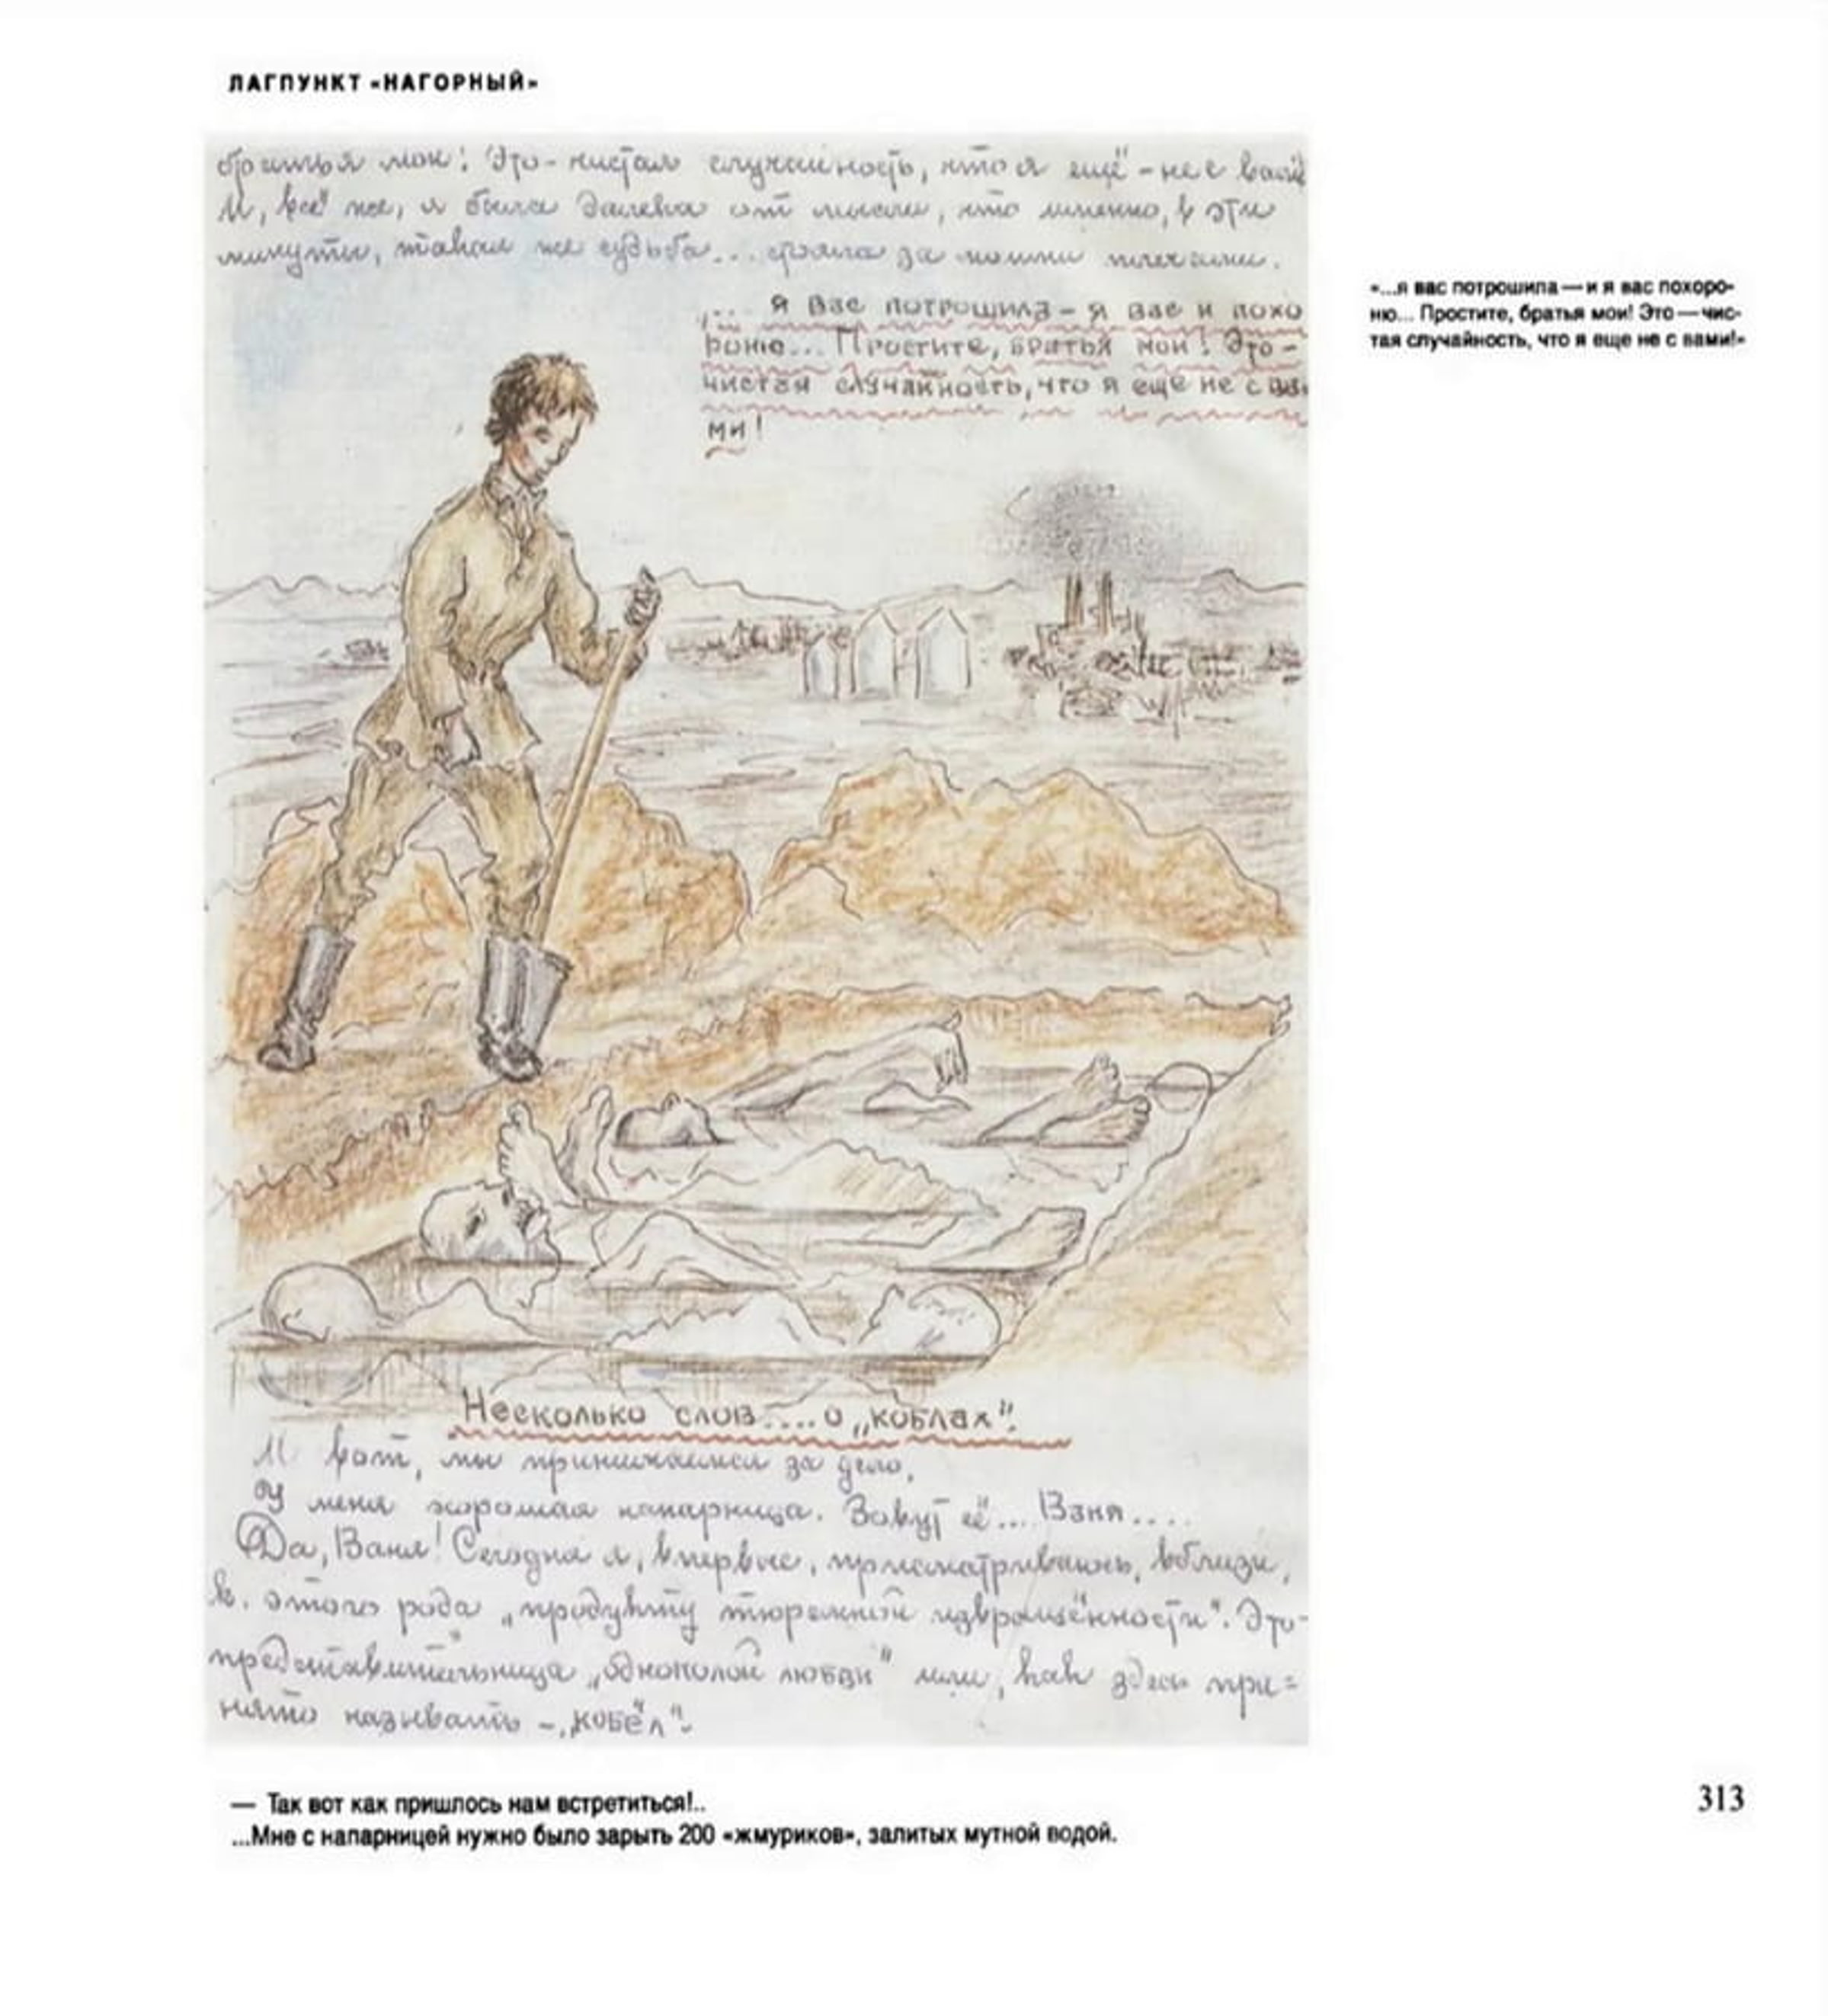 ЛАГПУНКТ «НАГОРНЫЙ»
братья мои! Это - чистая случайность, что я ещё - не с вами!
И, всё же, я была далека от мысли, что именно, в эти
минуты, такая же судьба... стояла за моими плечами.
„... я вас потрошила - я вас и похо
роню... Простите, братья мои! Это -
чистая случайность, что я еще не с ва-
ми!
«...я вас потрошила — и я вас похоро-
ню... Простите, братья мои! Это — чис-
тая случайность, что я еще не с вами!»
Несколько слов.... о „коблах".
И вот, мы принимаемся за дело.
У меня хорошая напарница. Зовут её... Ваня....
Да, Ваня! Сегодня я, впервые, присматриваюсь, вблизи,
к. этого рода „продукту тюремной извращённости". Это-
представительница „однополой любви" или, как здесь при=
нято называть - „кобёл".
— Так вот как пришлось нам встретиться!..
...Мне с напарницей нужно было зарыть 200 «жмуриков», залитых мутной водой.
313